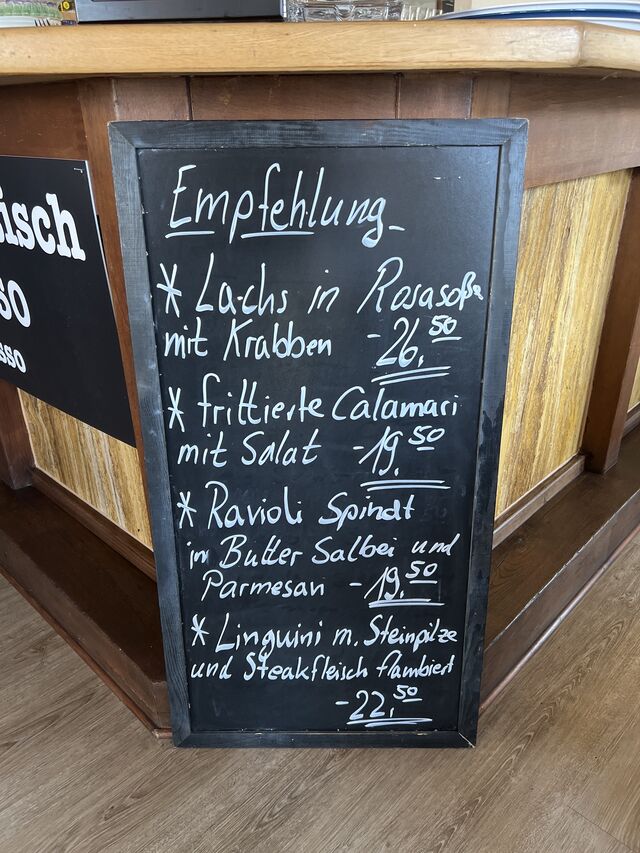 isch
so
sso
Empfehlung
* Lachs in Rosasoße
mit Krabben - 26,50
* frittierte Calamari
mit Salat - 19,50
* Ravioli Spinat
in Butter Salbei und
Parmesan - 19,50
* Linguini m. Steinpilze
und Steakfleisch flambiert
- 22,50